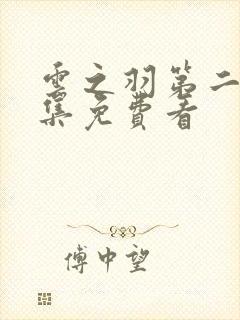 雲之羽第二
集免費看
傅中望